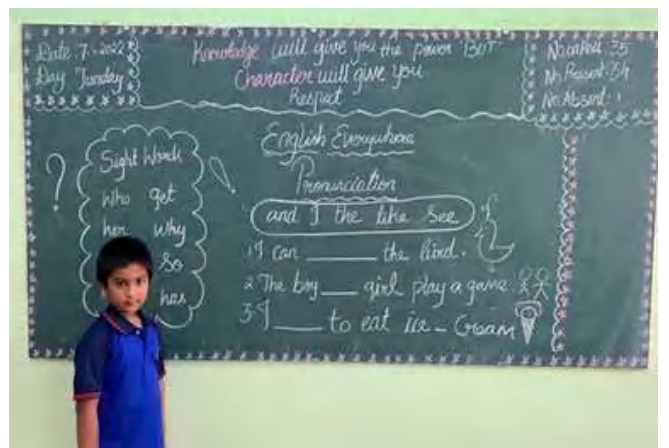 Date 7-2022
Day Tuesday
Knowledge will give you the power 'BUT'
Character will give you
Respect
No on Roll 35
No Present 34
No Absent 1
Sight Words
who get
her why
so
has
English Everywhere
Pronunciation
and I the like see
1 I can ______ the bird.
2 The boy ___ girl play a game
3 I ____ to eat ice-Cream